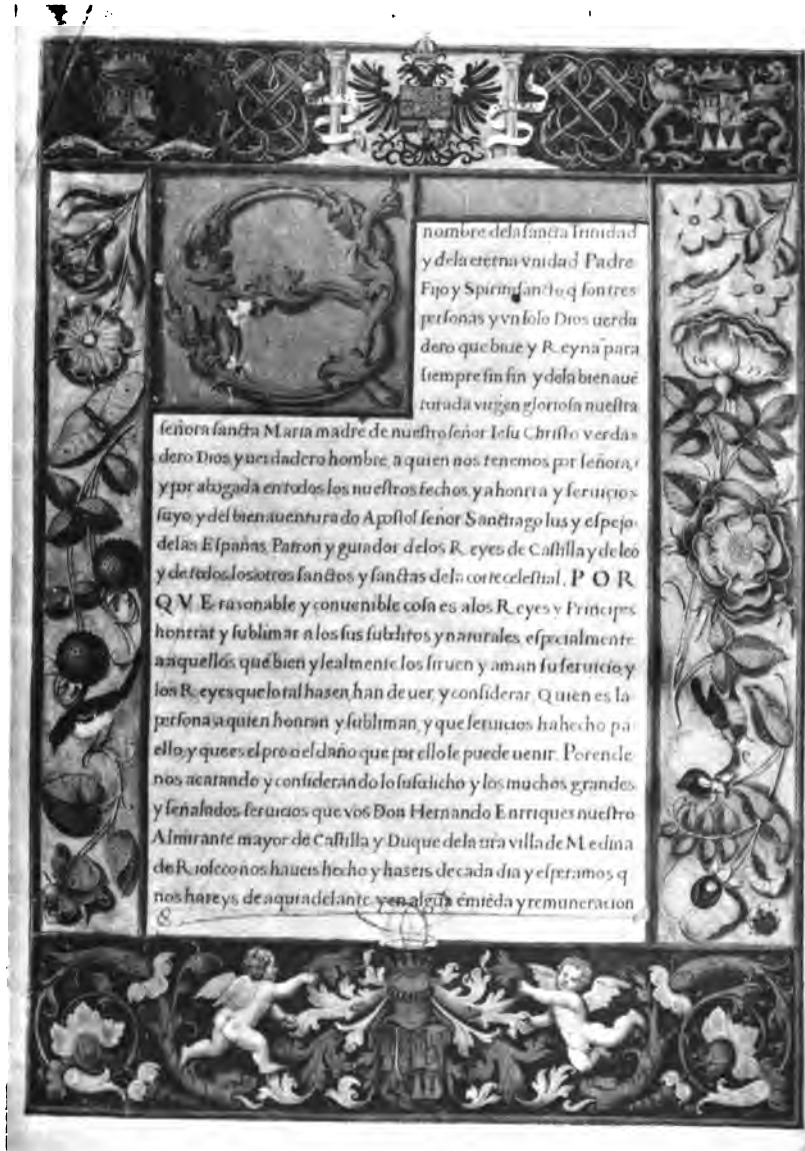 E
nombre dela sancta Trinidad
y dela eterna vnidad Padre
Fijo y Spiritu sancto q̃ son tres
personas y vn solo Dios uerda
dero que biue y Reyna para
siempre sin fin y dela bienauẽ
turada virgen gloriosa nuestra
señora sancta Maria madre de nuestro señor Iesu Christo verda
dero Dios y uerdadero hombre, a quien nos tenemos por señora,
y por abogada en todos los nuestros fechos, y a honrra y seruicio
suyo, y del bienauenturado Apostol señor Sanctiago lus y espejo
delas Españas, Patron y guiador delos Reyes de Castilla y de leõ
y de todos los otros sanctos y sanctas dela corte celestial. POR
QVE rasonable y conuenible cosa es alos Reyes y Principes
honrrar y sublimar a los sus subditos y naturales, especialmente
a aquellos que bien y lealmente los siruen y aman su seruicio y
los Reyes que lo tal hasen, han de uer, y considerar, Quien es la
persona a quien honran y subliman, y que seruicios ha hecho pa
ello, y que es el pro o el daño que por ello se puede uenir. Porende
nos acatando y considerando lo susodicho y los muchos grandes
y señalados seruicios que vos Don Hernando Enrriques nuestro
Almirante mayor de Castilla y Duque dela ur̃a villa de Medina
de Rioseco nos haueis hecho y haseis de cada dia y esperamos q̃
nos hareys de aqui adelante, y en algũa ẽmiẽda y remuneracion